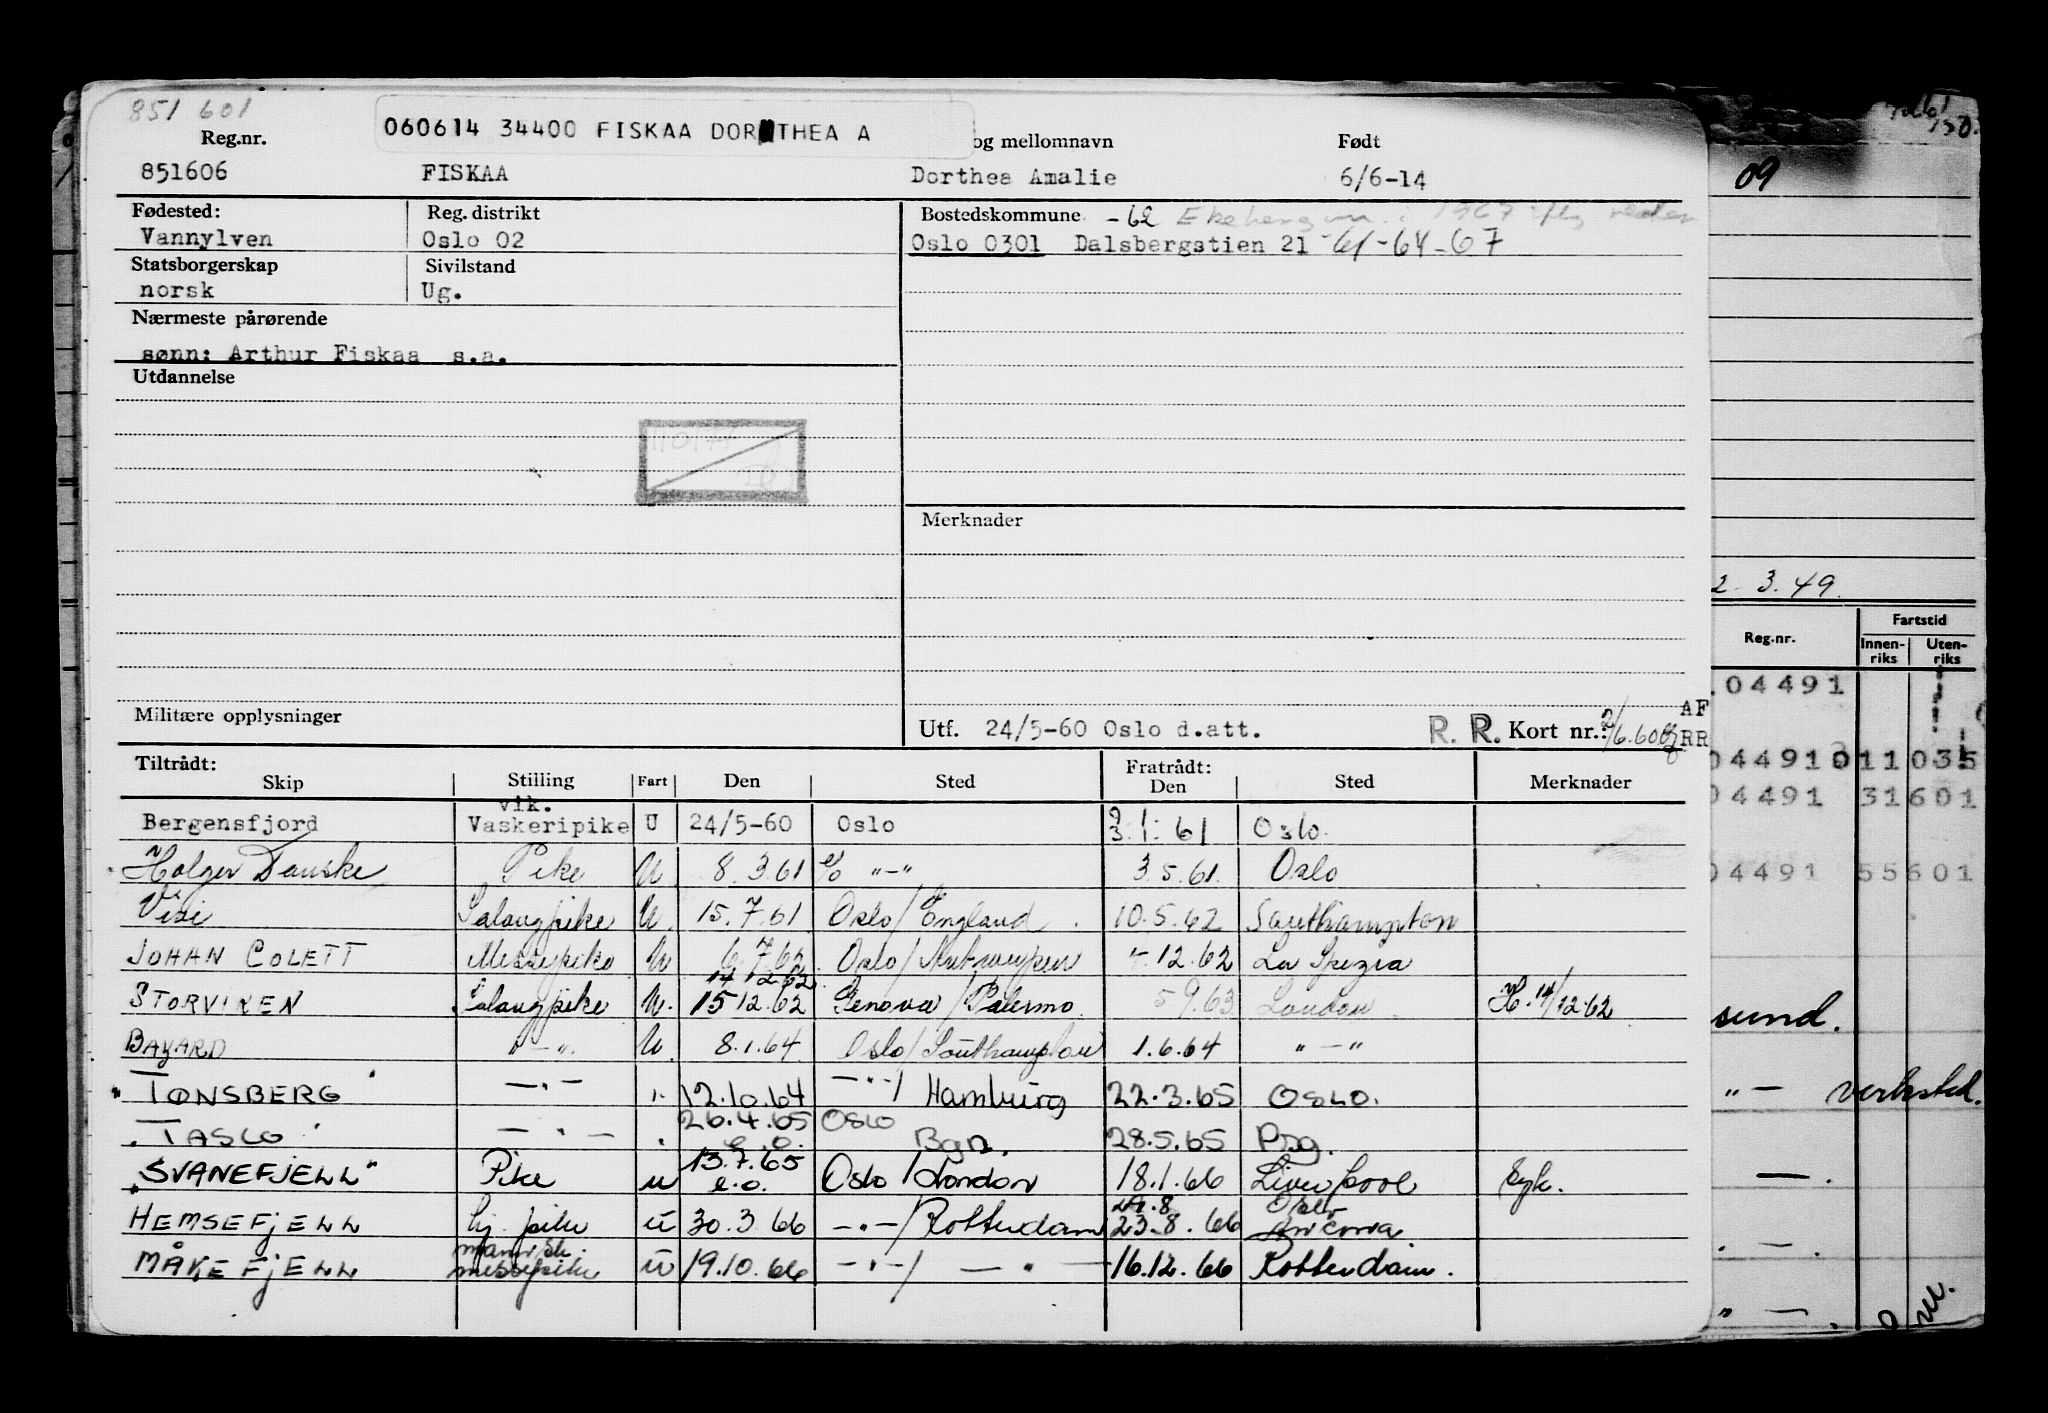 851 601
060614 34400 FISKAA DOROTHEA A
Reg.nr. og mellomnavn Født
851606 FISKAA Dorthea Amalie 6/6-14
09
Fødested: Reg. distrikt Bostedskommune -62
Vannylven Oslo 02 Oslo 0301 Dalsbergstien 21 -61-64-67
Statsborgerskap Sivilstand
norsk Ug.
Nærmeste pårørende
sønn: Arthur Fiskaa s.a.
Utdannelse
Merknader
2. 3. 49.
Militære opplysninger Utf. 24/5-60 Oslo d.att. R. R. Kort nr.: 2/6.60 AF RR
Reg.nr. Fartstid
Innen-riks Uten-riks
04491
04491 011 035
04491 31601
04491 55601
Tiltrådt: Fratrådt:
Skip Stilling Fart Den Sted Den Sted Merknader
Bergensfjord vik. Vaskeripike U 24/5-60 Oslo 3.1.61 Oslo.
Holger Danske Pike U 8.3.61 %o "-" 3.5.61 Oslo
Visi Salongpike U. 15.7.61 Oslo/England. 10.5.62 Southampton
JOHAN COLETT Messepike U 6.7.62 Oslo/Antwerpen 4.12.62 La Spezia
14 12.62
STORVIKEN Salongpike U. 15 12.62 Genova/Palermo. 5.9.63 London. H. 14/12-62
BAYARD "-" U. 8.1.64. Oslo/Southampton 1.6.64 "-"
sund.
"TØNSBERG" -"- ". 12.10.64 -"-/Hamburg 22.3.65 OSLO.
"- verksted.
"TASCO" -"- " 26.4.65 e.o. OSLO Bgn. 28.5.65 Psg.
"SVANEFJELL" Pike u 13.7.65 e.o. Oslo/London 18.1.66 Liverpool Syk.
24.8 Oslo
HEMSEFJELL hj. pike u 30.3.66 -"-/Rotterdam 23.8.66 Ancona.
MÅKEFJELL mannsk. messepike u 19.10.66 -"-/-"- 16.12.66 Rotterdam.